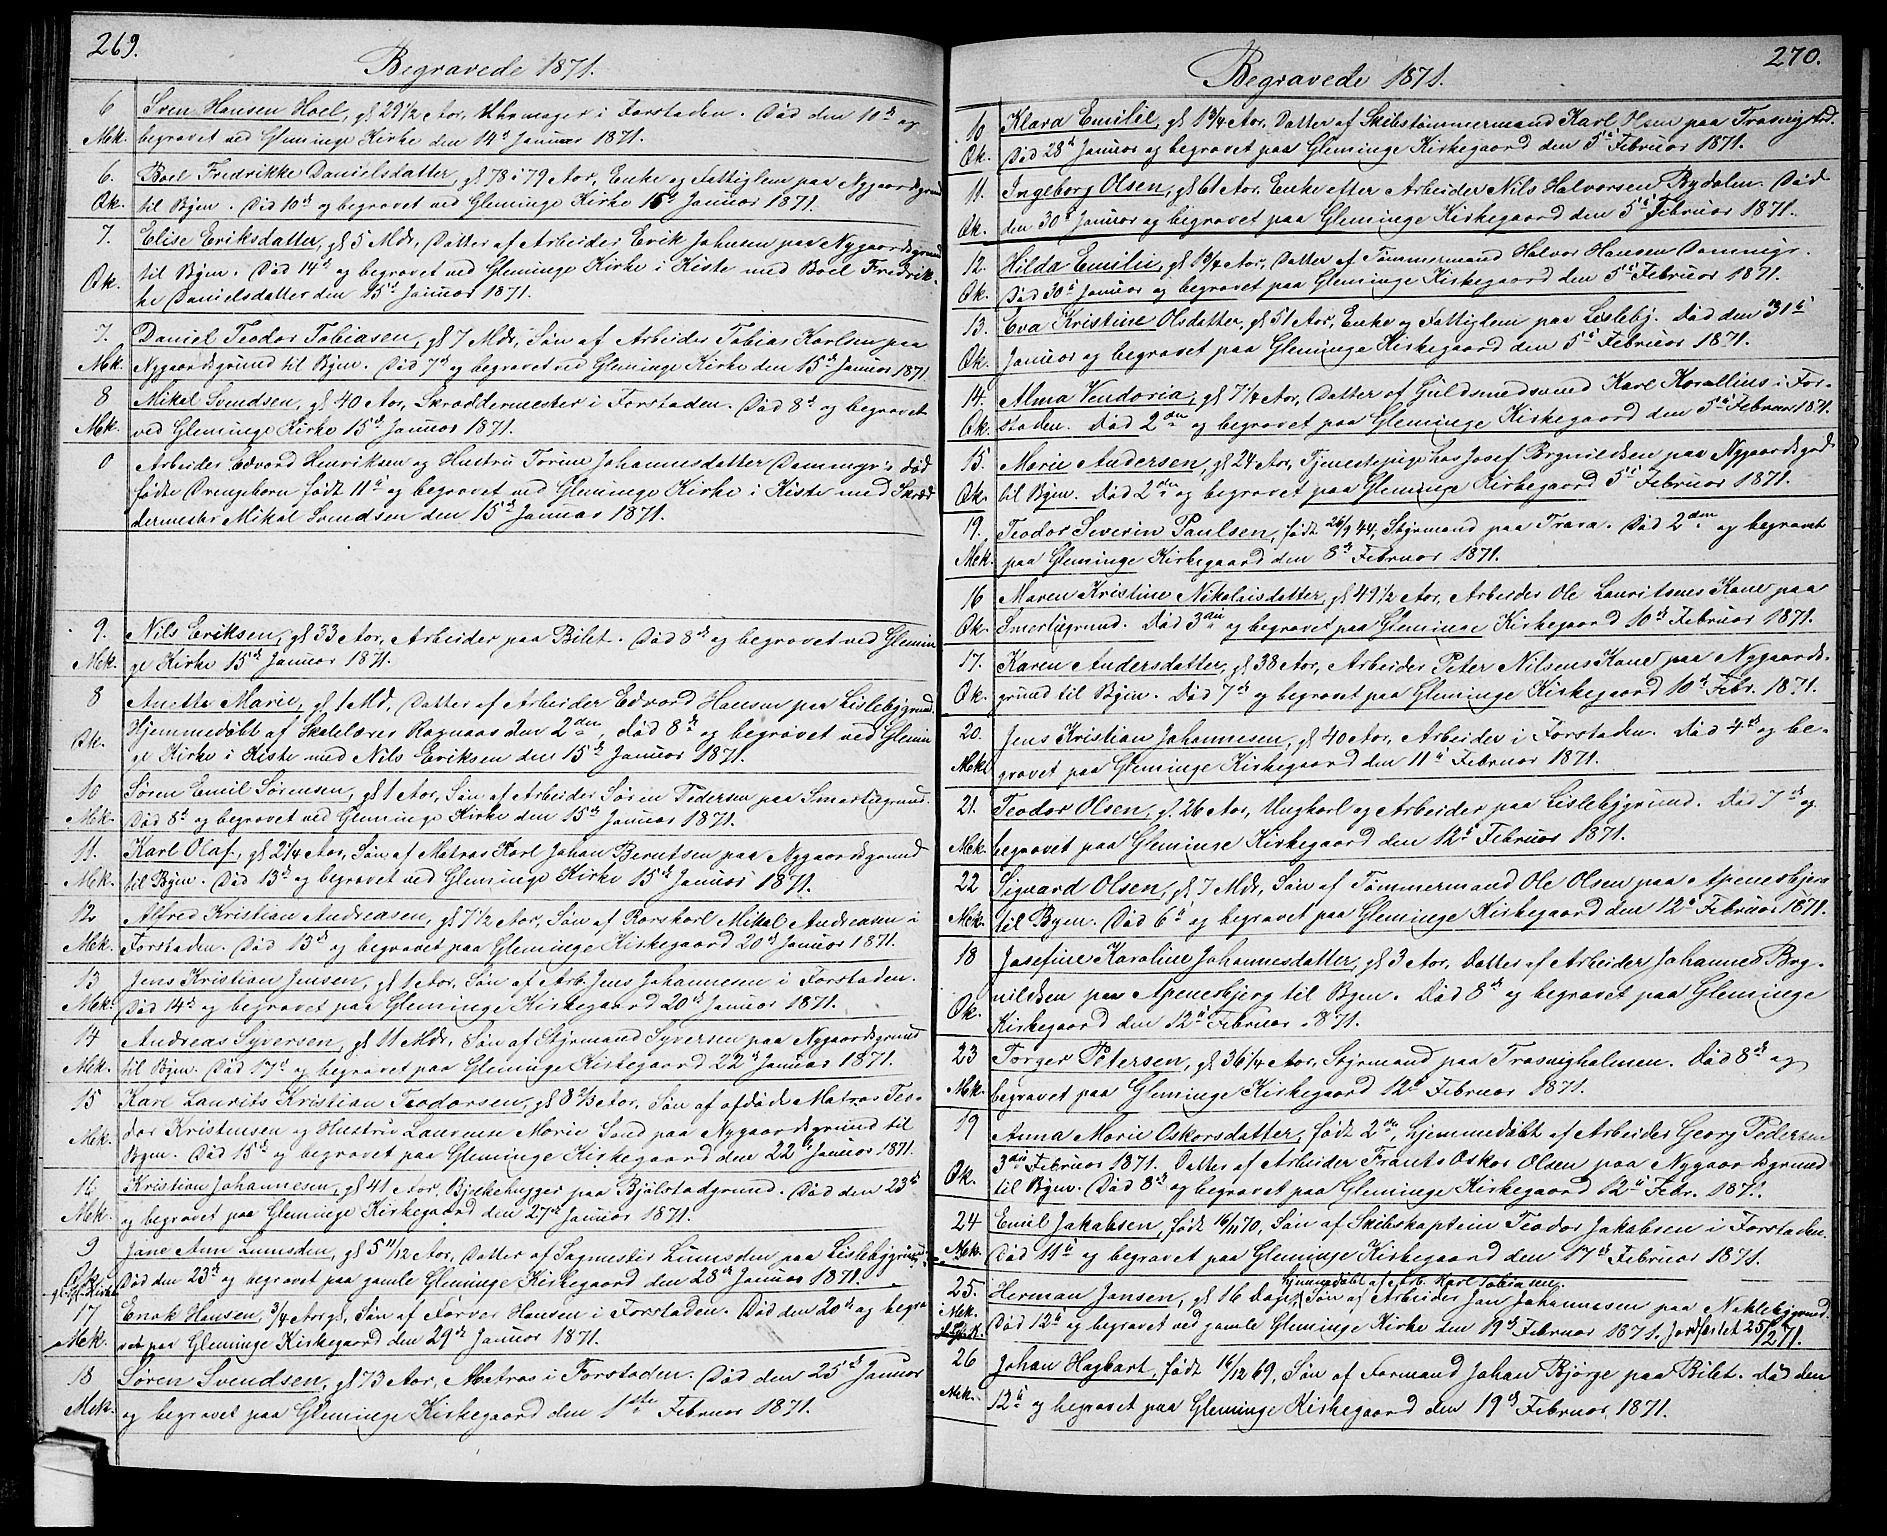 269.
Begravede 1871.
6 Sven Hansen Hoel, gl 29 1/2 Aar, Uhrmager i Forstaden. Død den 10de og
Mk. begravet ved Gleminge Kirke den 14de Januar 1871.
6. Boel Fredrikke Danielsdatter, gl 78 i 79 Aar, Enke og Fattiglem paa Nygaardsgrund
Qk. til Byen. Død 10de og begravet ved Gleminge Kirke 15de Januar 1871.
7. Elise Eriksdatter, gl 5 Mdr, Datter af Arbeider Erik Johnsen paa Nygaardsgrund
Qk. til Byen. Død 14de og begravet ved Gleminge Kirke i Kiste med Boel Fredrik-
ke Danielsdatter den 15de Januar 1871.
7. Daniel Teodor Tobiasen, gl 7 Mdr, Søn af Arbeider Tobias Karlsen paa
Mk. Nygaardsgrund til Byen. Død 7de og begravet ved Gleminge Kirke den 15de Januar 1871.
8 Mikal Svendsen, gl 40 Aar, Skræddermester i Forstaden. Død 8de og begravet
Mk. ved Gleminge Kirke 15de Januar 1871.
0 Arbeider Edvard Henriksen og Hustru Torine Johannesdatter Dammyr's død
fødte Drengebarn født 11te og begravet ved Gleminge Kirke i Kiste med Skræd
dermester Mikal Svendsen den 15de Januar 1871.
9. Nils Eriksen, gl 53 Aar, Arbeider paa Bilet. Død 8de og begravet ved Glemin
Mk. ge Kirke 15de Januar 1871.
8 Anette Marie, gl 1 Md, Datter af Arbeider Edvard Hansen paa Lislebygrund.
Qk. Hjemmedøbt af Skolelærer Ragnaas den 2den, død 8de og begravet ved Glemin
ge Kirke i Kiste med Nils Eriksen den 15de Januar 1871.
10 Søren Emil Sørensen, gl 1 Aar, Søn af Arbeider Søren Pedersen paa Smertugrund.
Mk. Død 8de og begravet ved Gleminge Kirke den 15de Januar 1871.
11. Karl Olaf, gl 2 1/4 Aar, Søn af Matros Karl Johan Berntsen paa Nygaardsgrund
Mk. til Byen. Død 13de og begravet ved Gleminge Kirke 15de Januar 1871.
12 Alfred Kristian Andreasen, gl 7 1/2 Aar, Søn af Rorskarl Mikal Andreasen i
Mk. Forstaden. Død 13de og begravet paa Gleminge Kirkegaard 20de Januar 1871.
13 Jens Kristian Jensen, gl 1 Aar, Søn af Arb. Jens Johannesen i Forstaden.
Mk. Død 14de og begravet paa Gleminge Kirkegaard 20de Januar 1871.
14 Andreas Syversen, gl 11 Mdr, Søn af Styrmand Syversen paa Nygaardsgrund
Mk. til Byen. Død 17de og begravet paa Gleminge Kirkegaard 22de Januar 1871.
15 Karl Laurits Kristian Teodorsen, gl 8 2/3 Aar, Søn af afdøde Matros Teo-
Mk. dor Kristensen og Hustru Laurense Marie Sand paa Nygaardsgrund til
Byen. Død 15de og begravet paa Gleminge Kirkegaard den 22de Januar 1871.
16. Kristian Johannesen, gl 41 Aar, Bjelkehugger paa Bjølstadgrund. Død den 23de
Mk. og begravet paa Gleminge Kirkegaard den 27de Januar 1871.
9 Jane Ann Lumsden, gl 5 11/12 Aar, Datter af Sagmester Lumsden paa Lislebygrund.
Qk. Død den 23de og begravet paa gamle Gleminge Kirkegaard den 28de Januar 1871.
17 Enok Hansen, 3/4 Aar gl, Søn af Farver Hansen i Forstaden. Død den 20de og begra
Mk. vet paa Gleminge Kirkegaard den 29de Januar 1871.
18 Søren Svendsen, gl 73 Aar, Matros i Forstaden. Død den 25de Januar
Mk. og begravet paa Gleminge Kirkegaard den 1ste Februar 1871.
270.
Begravede 1871.
10 Klara Emilie, gl 1 3/4 Aar, Datter af Skibstømmermand Karl Olsen paa Trosvigstrd.
Qk. Død 28de Januar og begravet paa Gleminge Kirkegaard den 5te Februar 1871.
11. Ingeborg Olsen, gl 61 Aar, Enke etter Arbeider Nils Halvorsen Rydalen. Død
Qk. den 30te Januar og begravet paa Gleminge Kirkegaard den 5te Februar 1871.
12. Hilda Emilie, gl 1 3/4 Aar, Datter af Tømmermand Halvor Hansen Dammyr.
Qk. Død 30te Januar og begravet paa Gleminge Kirkegaard den 5te Februar 1871.
13. Eva Kristine Olsdatter, gl 51 Aar, Enke og Fattiglem paa Lisleby. Død den 31te
Qk. Januar og begravet paa Gleminge Kirkegaard den 5te Februar 1871.
14. Alma Vendoria, gl 7 1/4 Aar, Datter af Guldsmedsvend Karl Korallius i For-
Qk. staden. Død 2den og begravet paa Gleminge Kirkegaard den 5te Februar 1871.
15. Marie Andersen, gl 24 Aar, Tjenestepige hos Josef Brynildsen paa Nygaardsgrd
Qk. til Byen. Død 2den og begravet paa Gleminge Kirkegaard 5te Februar 1871.
19. Teodor Severin Paulsen, født 26/9 44, Styrmand paa Trara. Død 2den og begravet
Mk. paa Gleminge Kirkegaard den 8de Februar 1871.
16 Maren Kristine Nikolaisdatter, gl 49 1/2 Aar, Arbeider Ole Lauritsens Kone paa
Qk. Smertugrund. Død 3die og begravet paa Gleminge Kirkegaard 10de Februar 1871.
17. Karen Andersdatter, gl 38 Aar, Arbeider Peter Nilsens Kone paa Nygaards-
Qk. grund til Byen. Død 7de og begravet paa Gleminge Kirkegaard 10de Febr. 1871.
20. Jens Kristian Johannesen, gl 40 Aar, Arbeider i Forstaden. Død 4de og be-
Mk. gravet paa Gleminge Kirkegaard den 11te Februar 1871.
21. Teodor Olsen, gl. 26 Aar, Ungkarl og Arbeider paa Lislebygrund. Død 7de og
Mk. begravet paa Gleminge Kirkegaard den 12te Februar 1871.
22 Sigvard Olsen, gl 7 Mdr, Søn af Tømmermand Ole Olsen paa Apenesbjerg
Mk. til Byen. Død 6te og begravet paa Gleminge Kirkegaard den 12te Februar 1871.
18 Josefine Karoline Johannesdatter, gl 3 Aar, Datter af Arbeider Johannes Bry-
Qk. nildsen paa Apenesbjerg til Byen. Død 8de og begravet paa Gleminge
Kirkegaard den 12te Februar 1871.
23 Torger Petersen, gl 36 1/4 Aar, Styrmand paa Trosvigholmen. Død 8de og
Mk. begravet paa Gleminge Kirkegaard 12te Februar 1871.
19 Anna Marie Oskarsdatter, født 2den, hjemmedøbt af Arbeider Georg Pedersen
Qk. 3die Februar 1871. Datter af Arbeider Frants Oskar Olsen paa Nygaardsgrund
til Byen. Død 8de og begravet paa Gleminge Kirkegaard 12te Febr. 1871.
24 Emil Jakobsen, født 16/11 70, Søn af Skibskaptein Teodor Jakobsen i Forstaden.
Mk. Død 11te og begravet paa Gleminge Kirkegaard den 17de Februar 1871.
hjemmedøbt af Arb. Karl Tobiasen.
25. Herman Jansen, gl 16 Dage, Søn af Arbeider Jan Johannesen paa Naklebygrund.
Mk. Død 12te og begravet ved gamle Gleminge Kirke den 19de Februar 1871. Jordfæstet 25/12 71.
26 Johan Hagbart, født 16/12 69, Søn af Formand Johan Bjørge paa Bilet. Død den
Mk. 12te og begravet paa Gleminge Kirkegaard den 19de Februar 1871.